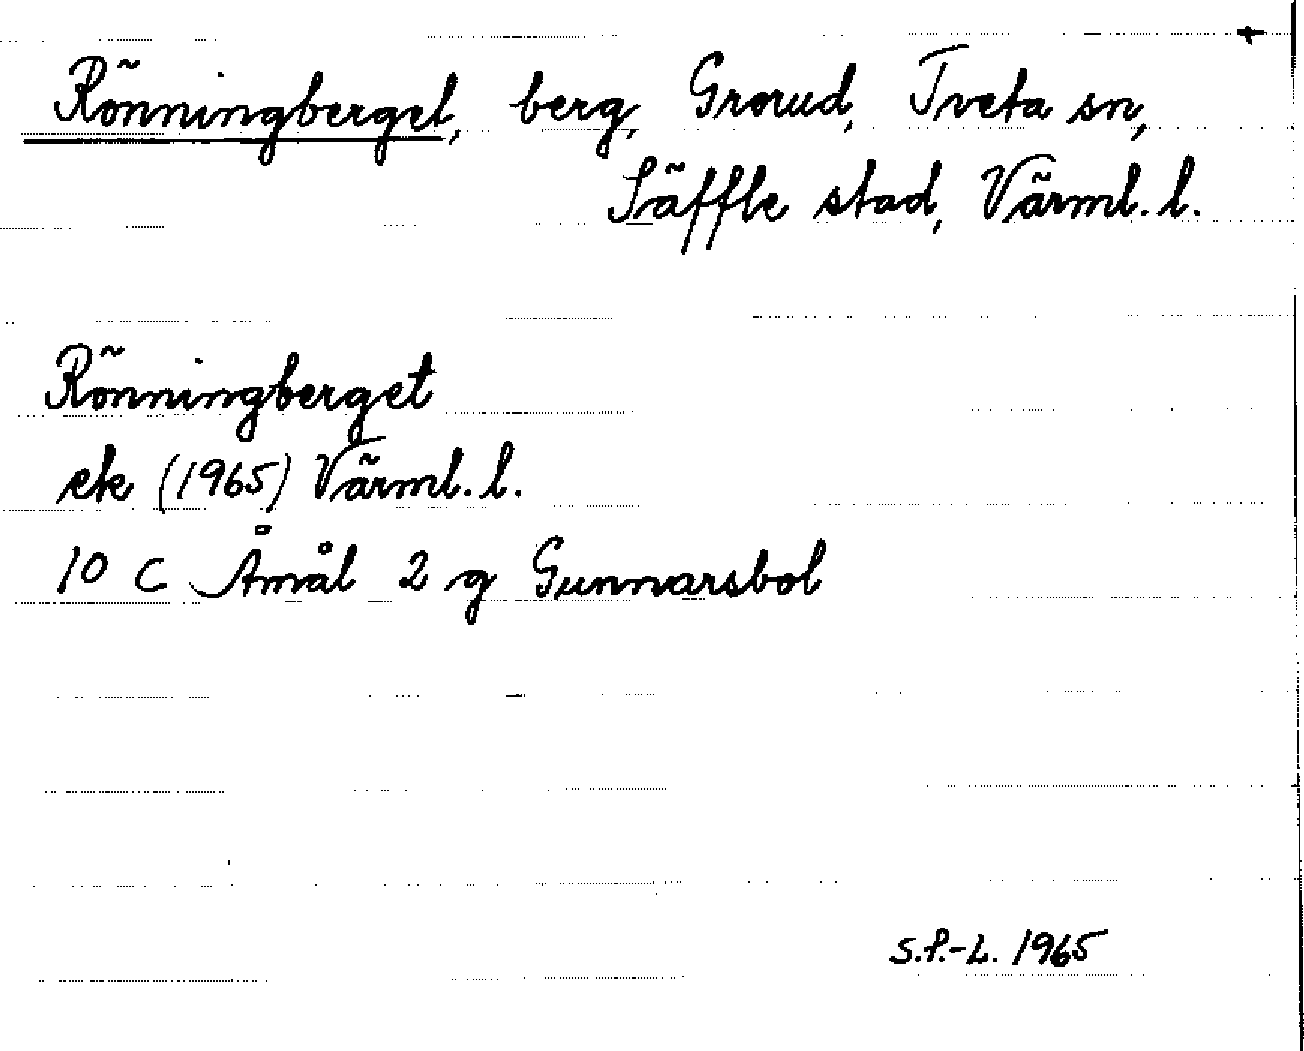 Rönningberget, berg, Grorud, Tveta sn,
Säffle stad, Värml. l.
Rönningberget
ek (1965) Värml. l.
10 C Åmål 2 g Gunnarsbol
S.P.-L. 1965